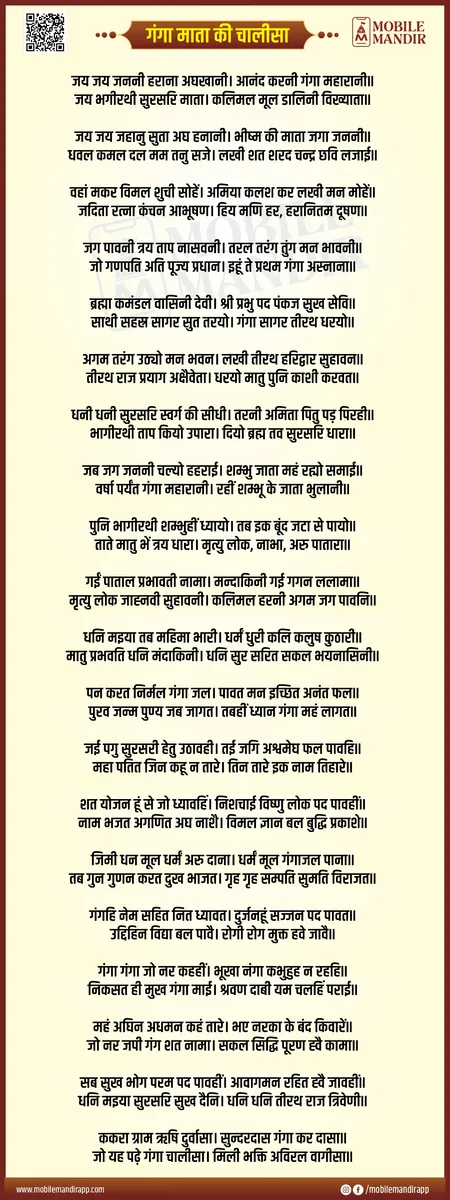 गंगा माता की चालीसा
MOBILE
MANDIR
जय जय जननी हराना अघखानी। आनंद करनी गंगा महारानी॥
जय भगीरथी सुरसरि माता। कलिमल मूल डालिनी विख्याता॥
जय जय जहानु सुता अघ हनानी। भीष्म की माता जगा जननी॥
धवल कमल दल मम तनु सजे। लखी शत शरद चन्द्र छवि लजाई॥
वहां मकर विमल शुची सोहें। अमिया कलश कर लखी मन मोहें॥
जदिता रत्ना कंचन आभूषण। हिय मणि हर, हरानितम दूषण॥
जग पावनी त्रय ताप नासवनी। तरल तरंग तुंग मन भावनी॥
जो गणपति अति पूज्य प्रधान। इहूं ते प्रथम गंगा अस्नाना॥
ब्रह्मा कमंडल वासिनी देवी। श्री प्रभु पद पंकज सुख सेवि॥
साथी सहस्र सागर सुत तरयो। गंगा सागर तीरथ धरयो॥
अगम तरंग उठ्यो मन भवन। लखी तीरथ हरिद्वार सुहावन॥
तीरथ राज प्रयाग अक्षैवेता। धरयो मातु पुनि काशी करवत॥
धनी धनी सुरसरि स्वर्ग की सीधी। तरनी अमिता पितु पड़ पिरही॥
भागीरथी ताप कियो उपारा। दियो ब्रह्म तव सुरसरि धारा॥
जब जग जननी चल्यो हहराई। शम्भु जाता महं रह्यो समाई॥
वर्षा पर्यंत गंगा महारानी। रहीं शम्भू के जाता भुलानी॥
पुनि भागीरथी शम्भुहीं ध्यायो। तब इक बूंद जटा से पायो॥
ताते मातु भें त्रय धारा। मृत्यु लोक, नाभा, अरु पातारा॥
गईं पाताल प्रभावती नामा। मन्दाकिनी गई गगन ललामा॥
मृत्यु लोक जाह्नवी सुहावनी। कलिमल हरनी अगम जग पावनि॥
धनि मइया तब महिमा भारी। धर्मं धुरी कलि कलुष कुठारी॥
मातु प्रभवति धनि मंदाकिनी। धनि सुर सरित सकल भयनासिनी॥
पन करत निर्मल गंगा जल। पावत मन इच्छित अनंत फल॥
पुरव जन्म पुण्य जब जागत। तबहीं ध्यान गंगा महं लागत॥
जई पगु सुरसरी हेतु उठावही। तई जगि अश्वमेघ फल पावहि॥
महा पतित जिन कहू न तारे। तिन तारे इक नाम तिहारे॥
शत योजन हूं से जो ध्यावहिं। निशचाई विष्णु लोक पद पावहीं॥
नाम भजत अगणित अघ नाशै। विमल ज्ञान बल बुद्धि प्रकाशे॥
जिमी धन मूल धर्मं अरु दाना। धर्मं मूल गंगाजल पाना॥
तब गुन गुणन करत दुख भाजत। गृह गृह सम्पति सुमति विराजत॥
गंगहि नेम सहित नित ध्यावत। दुर्जनहूं सज्जन पद पावत॥
उद्दिहिन विद्या बल पावै। रोगी रोग मुक्त हवे जावै॥
गंगा गंगा जो नर कहहीं। भूखा नंगा कभुहुह न रहहि॥
निकसत ही मुख गंगा माई। श्रवण दाबी यम चलहिं पराई॥
महं अघिन अधमन कहं तारे। भए नरका के बंद किवारें॥
जो नर जपी गंग शत नामा। सकल सिद्धि पूरण ह्वै कामा॥
सब सुख भोग परम पद पावहीं। आवागमन रहित ह्वै जावहीं॥
धनि मइया सुरसरि सुख दैनि। धनि धनि तीरथ राज त्रिवेणी॥
ककरा ग्राम ऋषि दुर्वासा। सुन्दरदास गंगा कर दासा॥
जो यह पढ़े गंगा चालीसा। मिली भक्ति अविरल वागीसा॥
www.mobilemandirapp.com
/mobilemandirapp